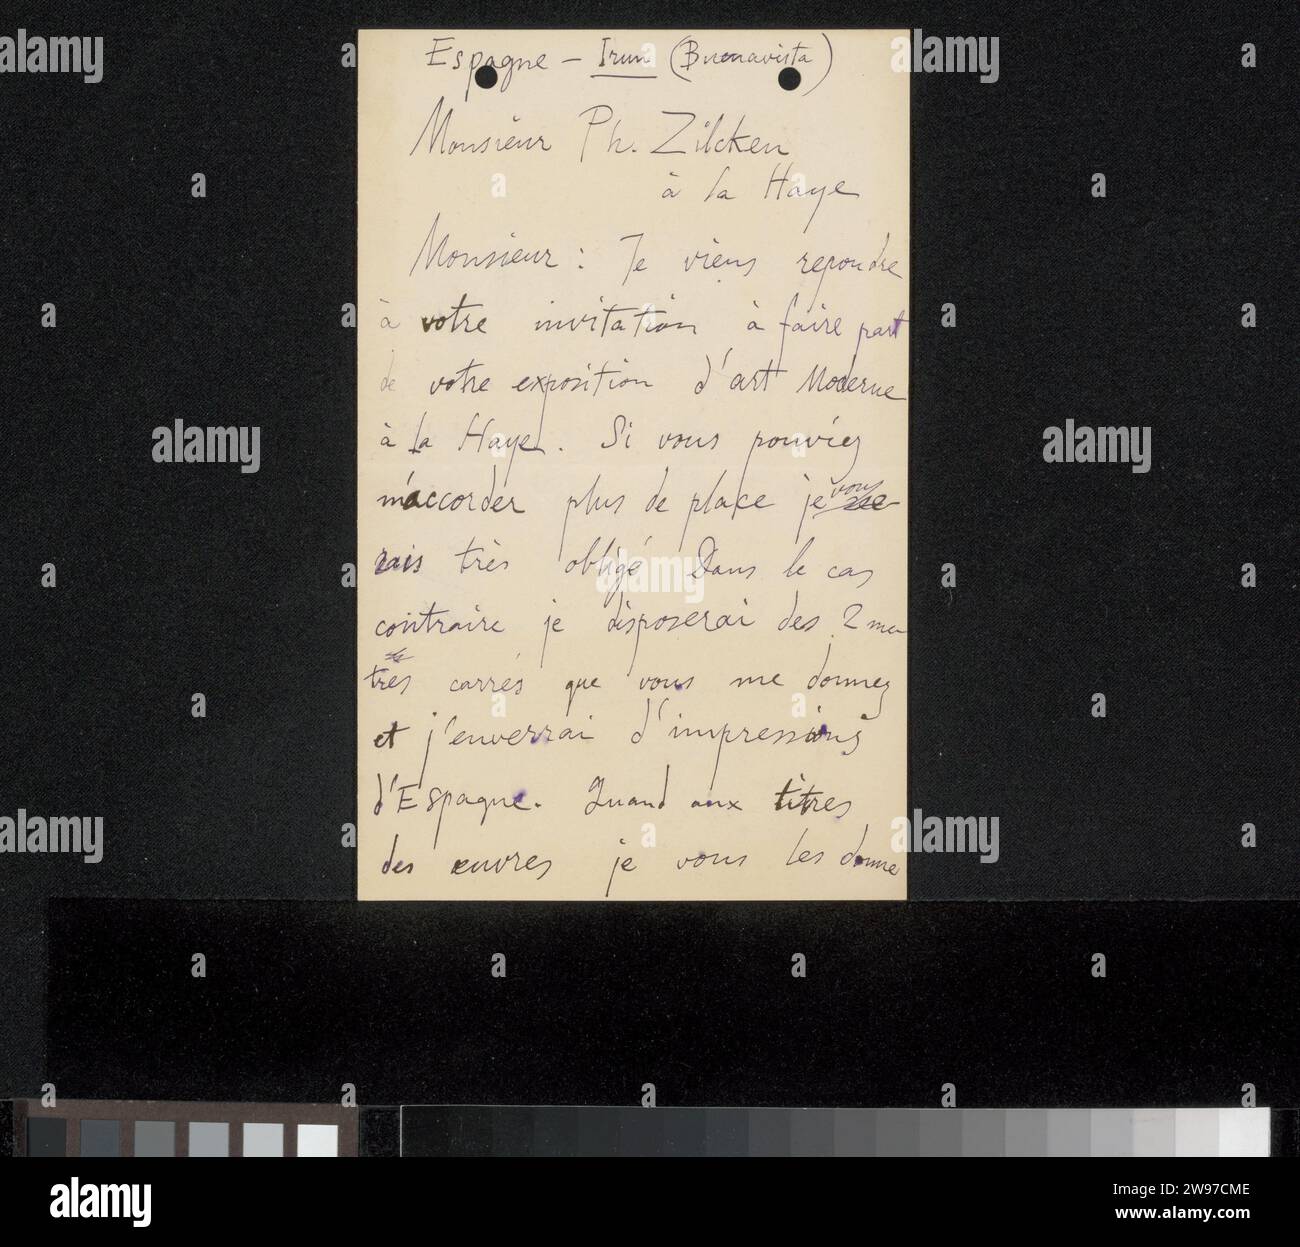 Espagne – Irun (Buenavista)
Monsieur Ph. Zilcken
à la Haye
Monsieur : Je viens repondre
à votre invitation à faire part
de votre exposition d'art Moderne
à la Haye. Si vous pouviez
m'accorder plus de place je vous se-
rais très obligé Dans le cas
contraire je disposerai des 2 me-
tres carrés que vous me donnez
et j'enverrai d'impressions
d'Espagne. Quand aux titres
des œuvres je vous les donne
alamy
Image ID: 2W97CME
www.alamy.com